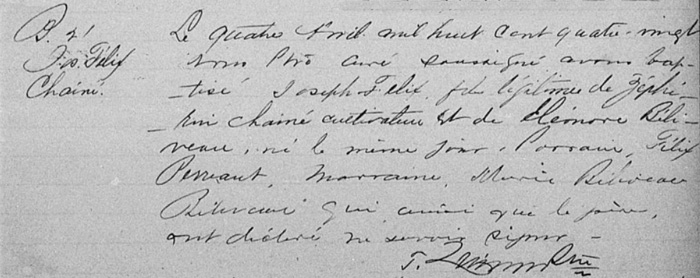 B. 21
Jos. Félix
Chainé.
Le quatre Avril mil huit cent quatre-vingt
nous Ptre curé soussigné avons bap-
-tisé Joseph Félix, fils légitime de Zéphi-
-rin Chainé cultivateur et de Eléonore Béli-
veau, né le même jour. Parrain, Félix
Perreault, Marraine, Marie Béliveau
Béliveau qui ainsi que le père,
ont déclaré ne savoir signer -